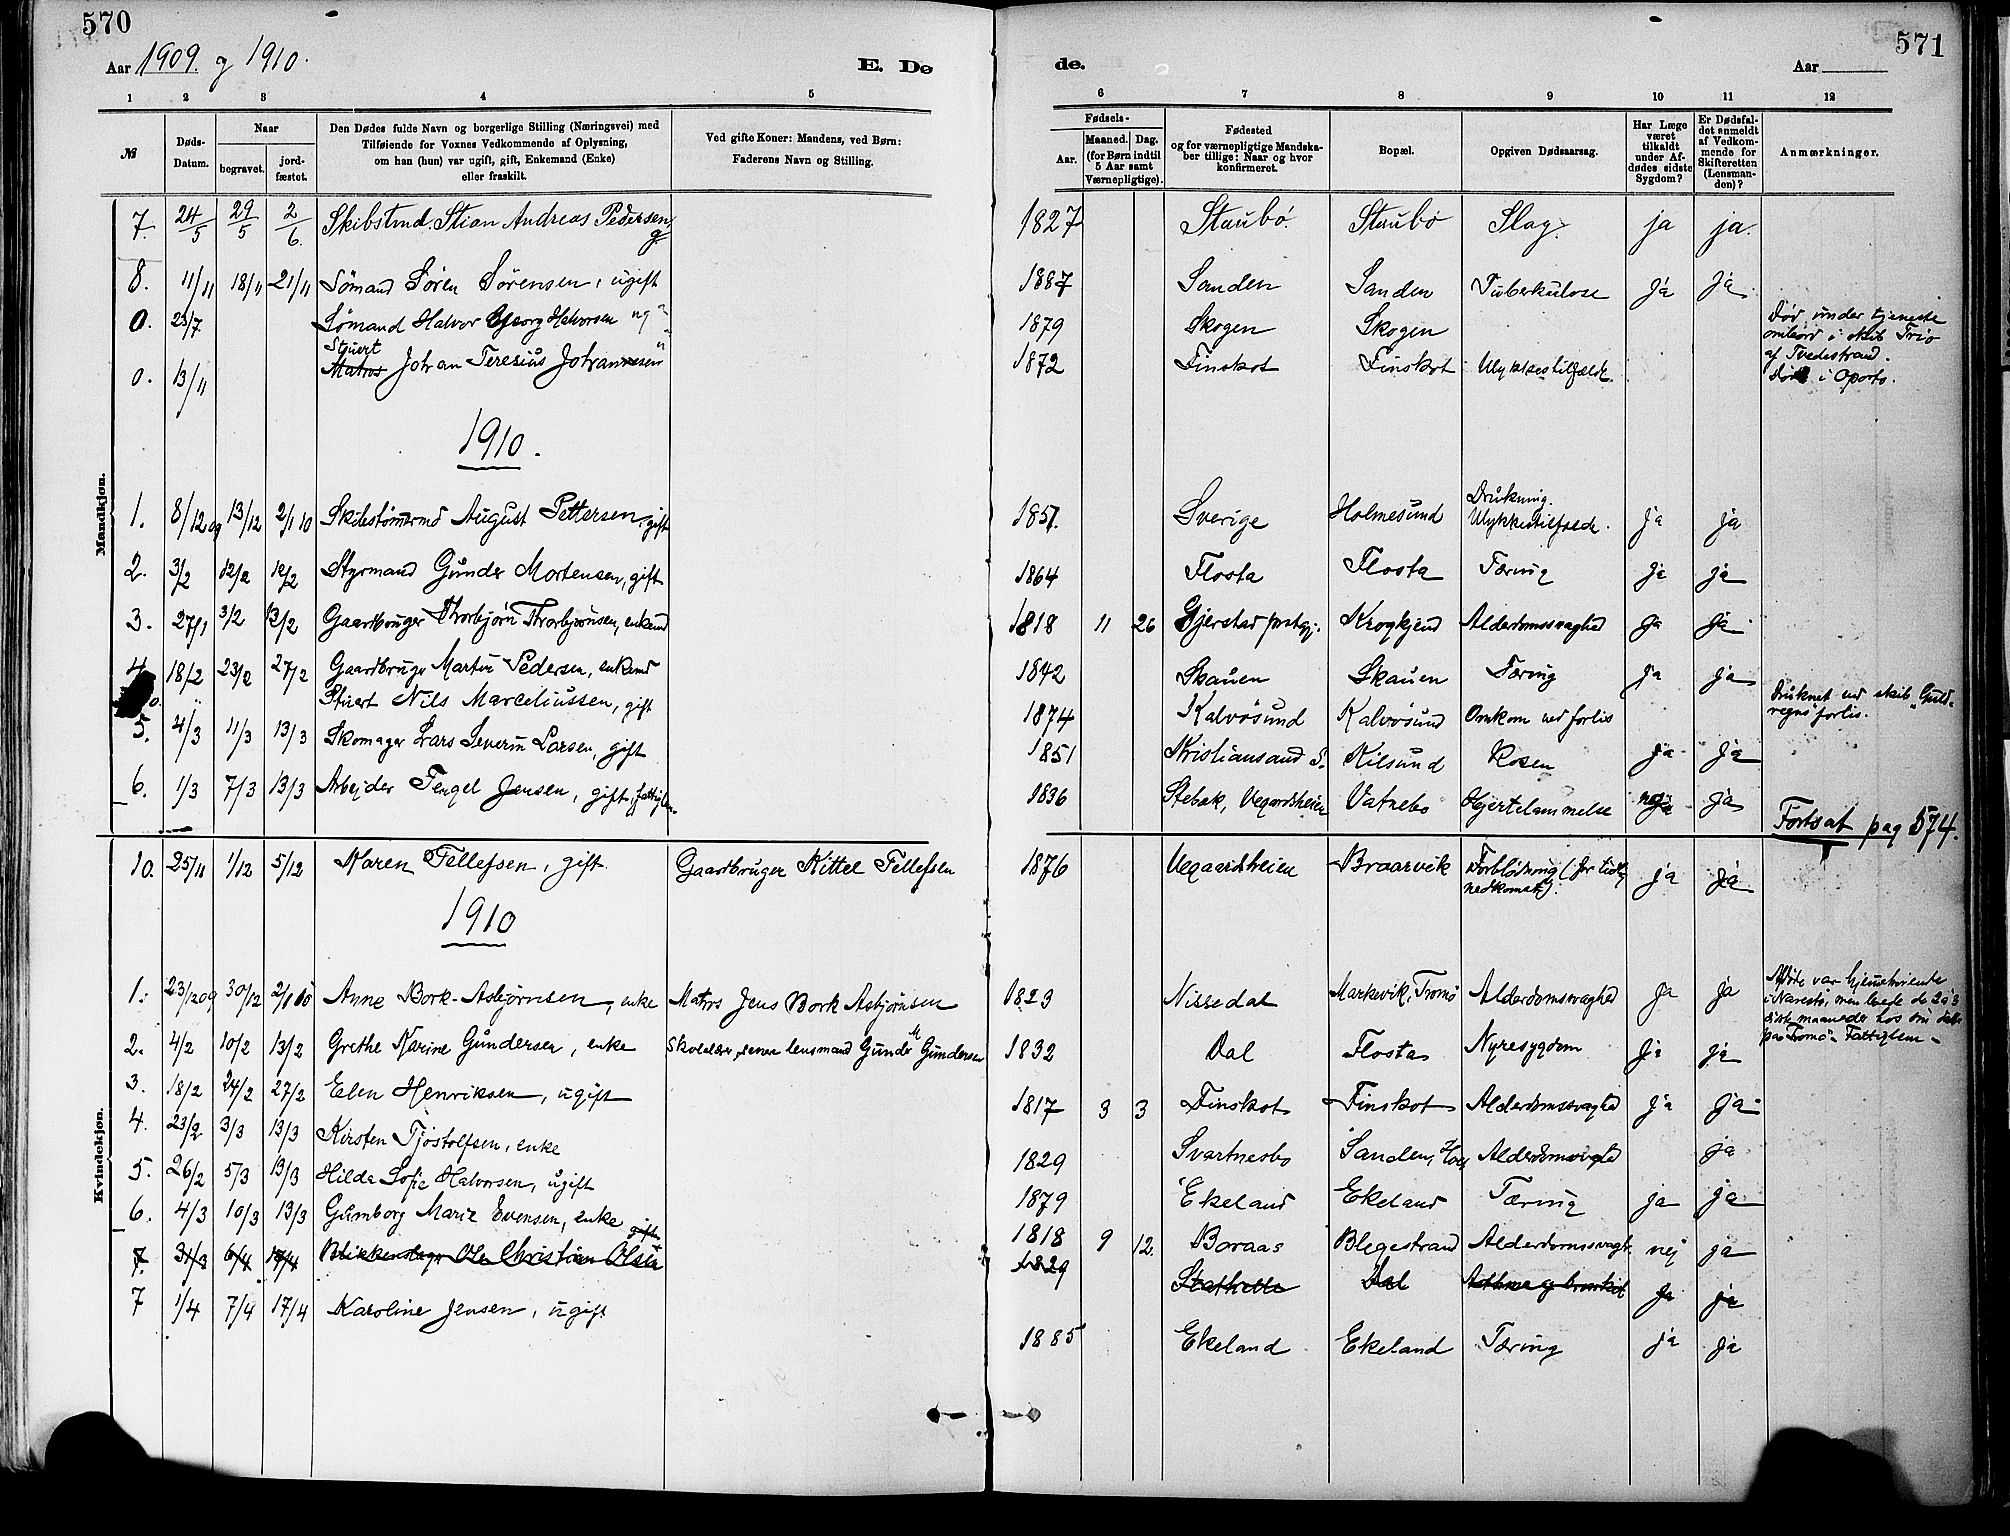 570
Aar 1909. og 1910.
E. Dø
1 2 3 4 5
№
Døds-Datum.
Naar
begravet.
jord-fæstet.
Den Dødes fulde Navn og borgerlige Stilling (Næringsvei) med
Tilføiende for Voxnes Vedkommende af Oplysning,
om han (hun) var ugift, gift, Enkemand (Enke)
eller fraskilt.
Ved gifte Koner: Mandens, ved Børn:
Faderens Navn og Stilling.
Mandkjøn.
7. 24/5 29/5 2/6. Skibstmd. Stian Andreas Pedersen, g.
8. 11/11 18/11 21/11 Sømand Søren Sørensen, ugift
0. 23/7 Sømand Halvor Georg Halvorsen ug "
Stuert
0. 13/11 Matros Johan Teresius Johannesen "
1910.
1. 8/12 09 13/12 2/1 10 Skibstømmermd August Pettersen, gift
2. 3/2 12/2 12/2 Styrmand Gunder Mortensen, gift
3. 27/1 3/2 13/2 Gaardbruger Thorbjørn Thorbjørnsen, enkemd
4. 18/2 23/2 27/2 Gaardbruger Martin Pedersen, enkemd
0. " Stuert Nils Marceliussen, gift
5. 4/3 11/3 13/3 Skomager Lars Severin Larsen, gift
6. 1/3 7/3 13/3 Arbejder Tengel Jensen, gift, fattiglem.
Kvindekjøn.
10. 25/11 1/12 5/12 Karen Tellefsen, gift Gaardbruger Kittel Tellefsen
1910
1. 23/12 09 30/12 2/1 10 Anne Bork-Asbjørnsen, enke Matros Jens Bork Asbjørnsen
2. 4/2 10/2 13/2 Grethe Karine Gundersen, enke Skolelærer, senere lensmand Gunder M Gundersen
3. 18/2 24/2 27/2 Elen Henriksen, ugift
4. 23/2 3/3 13/3 Kirsten Tjøstolfsen, enke
5. 26/2 5/3 13/3 Hilda Sofie Halvorsen, ugift
6. 4/3 10/3 13/3 Gunborg Marie Evensen, enke
gift
7. 31/3 6/4 10/4 Blikkenslager Ole Christian Olsen
7 1/4 7/4 17/4 Karoline Jensen, ugift
571
de.
Aar
6 7 8 9 10 11 12
Fødsels-
Aar.
Maaned. Dag.
(for Børn indtil
5 Aar samt
Værnepligtige).
Fødested
og for værnepligtige Mandska-
ber tillige: Naar og hvor
konfirmeret.
Bopæl.
Opgiven Dødsaarsag.
Har Læge
været
tilkaldt
under Af-
dødes sidste
Sygdom?
Er Dødsfal-
det anmeldt
af Vedkom-
mende for
Skifteretten
(Lensman-
den)?
Anmærkninger.
1827 Staubø. Staubø Slag. ja ja.
1887 Sanden Sanden Tuberkulose ja ja
1879 Skogen Skogen Død under tjeneste
ombord i skib Trio
af Tvedestrand.
1872 Finskot Finskot Ulykkestilfælde. Død i Oporto.
1857. Sverige Holmesund Drukning. Ulykkestilfælde. ja ja
1864 Flosta Flosta Tæring ja ja
1818 11 26 Gjerstad præstgj. Krogkjend Alderdomssvaghed ja ja
1842 Skauen Skauen Tæring ja ja
1874 Kalvøsund Kalvøsund Omkom ved forlis Druknet ved skib "Guld-
regns" forlis.
1851 Kristiansand S. Kilsund Rosen ja ja
1836 Stebæk, Vegardsheien Vatnebo Hjertelammelse nej ja
Fortsat pag 574.
1876 Vegaardsheien Braarvik Forblødning (for tidlig
nedkomst). ja ja
1823 Nissedal Markevik, Tromø Alderdomssvaghed ja ja Afdøde var hjemhørende
i Narestø, men levede de 2 à 3
sidste maaneder hos sin datter
paa Tromø - Fattiglem -
1832 Dal Flosta Nyresygdom ja ja
1817 3 3 Finskot Finskot Alderdomssvaghed ja ja
1829 Svartnesbo Sanden, Alderdomssvaghed ja
1879 Ekeland Ekeland Tæring ja ja
1818 9 12. Boraas Blegestrand Alderdomssvagh. nej ja
1829 Stathelle Dal Asthma og bronkit ja ja
1885 Ekeland Ekeland Tæring ja ja